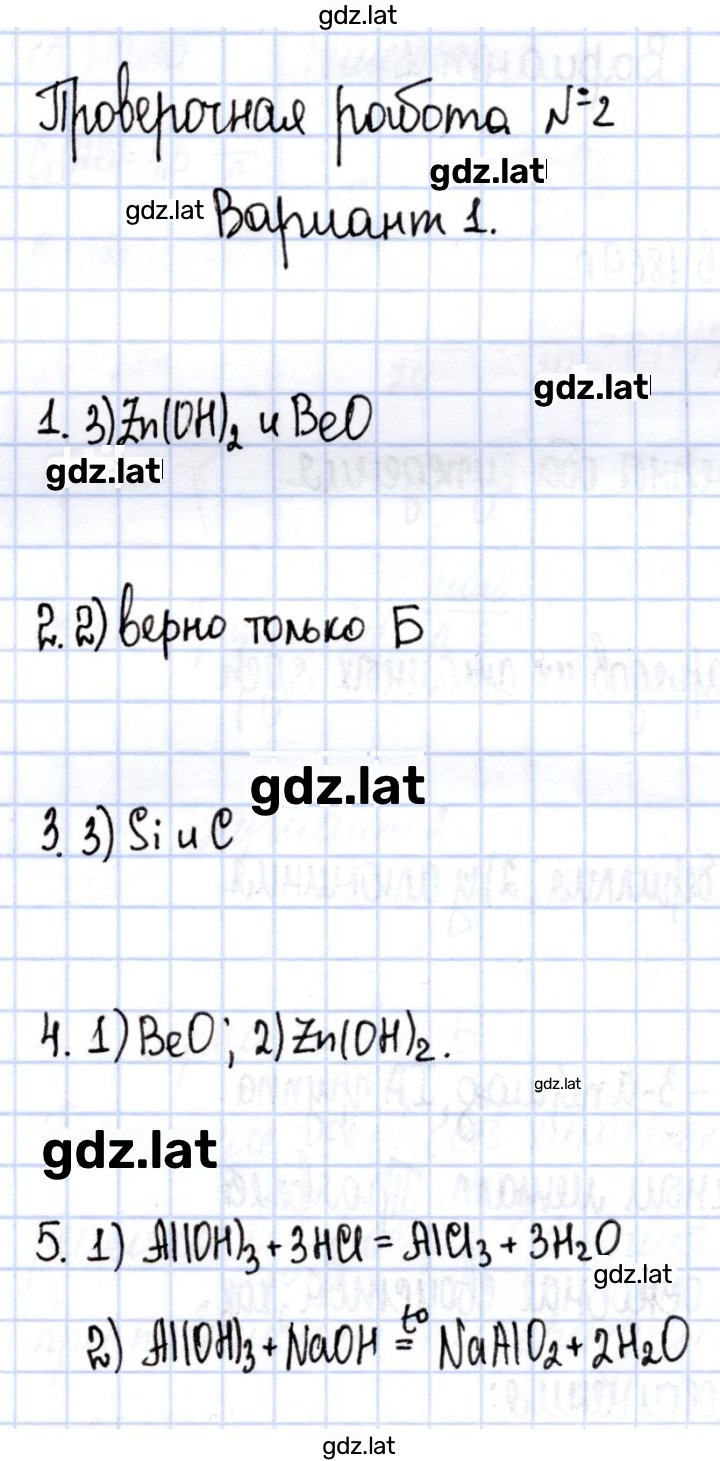 gdz.lat
Проверочная работа №2
gdz.lat
gdz.lat Вариант 1.
gdz.lat
1. 3) Zn(OH)₂ и BeO
gdz.lat
2. 2) верно только Б
gdz.lat
3. 3) Si и C
4. 1) BeO; 2) Zn(OH)₂.
gdz.lat
gdz.lat
5. 1) Al(OH)₃ + 3HCl = AlCl₃ + 3H₂O
gdz.lat
2) Al(OH)₃ + NaOH =(t°) NaAlO₂ + 2H₂O
gdz.lat